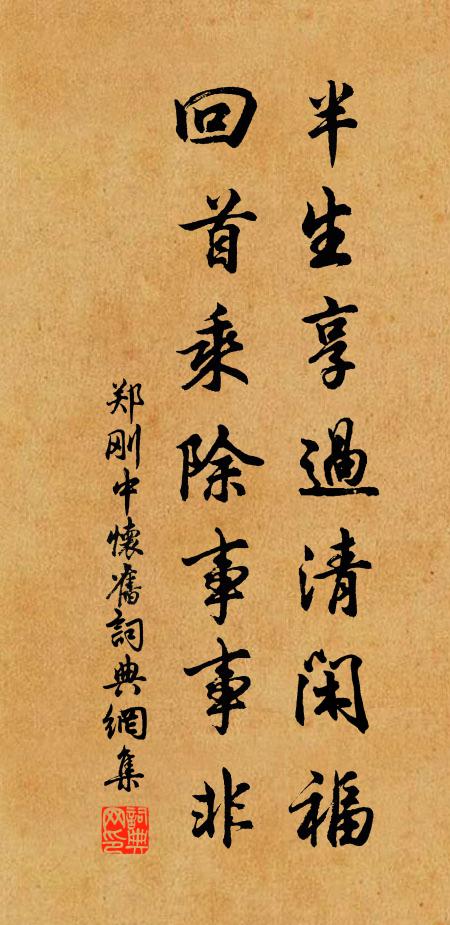 半生享過清閑福
回首乘除事事非
郑刚中懷舊詞典網集
詞典网印